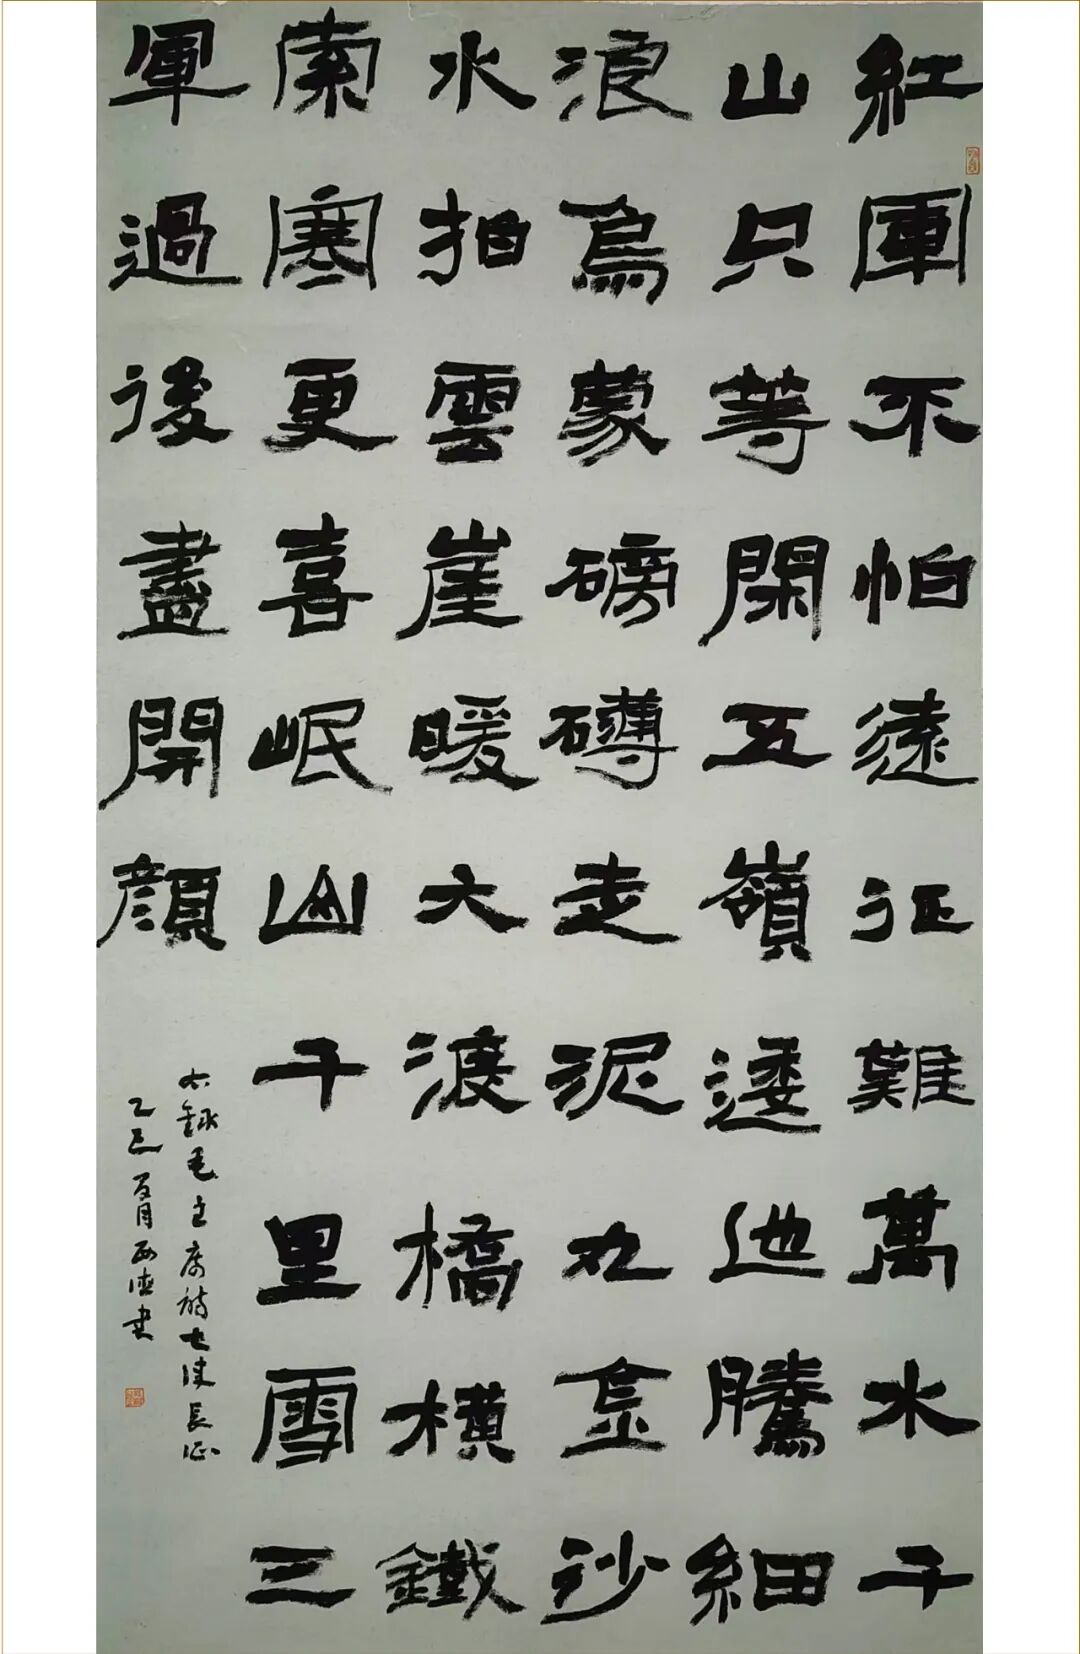 紅軍不怕遠征難萬水千
山只等閑五嶺逶迤騰細
浪烏蒙磅礴走泥丸金沙
水拍雲崖暖大渡橋橫鐵
索寒更喜岷山千里雪三
軍過後盡開顏
右錄毛主席詩七律長征
乙巳 月 書